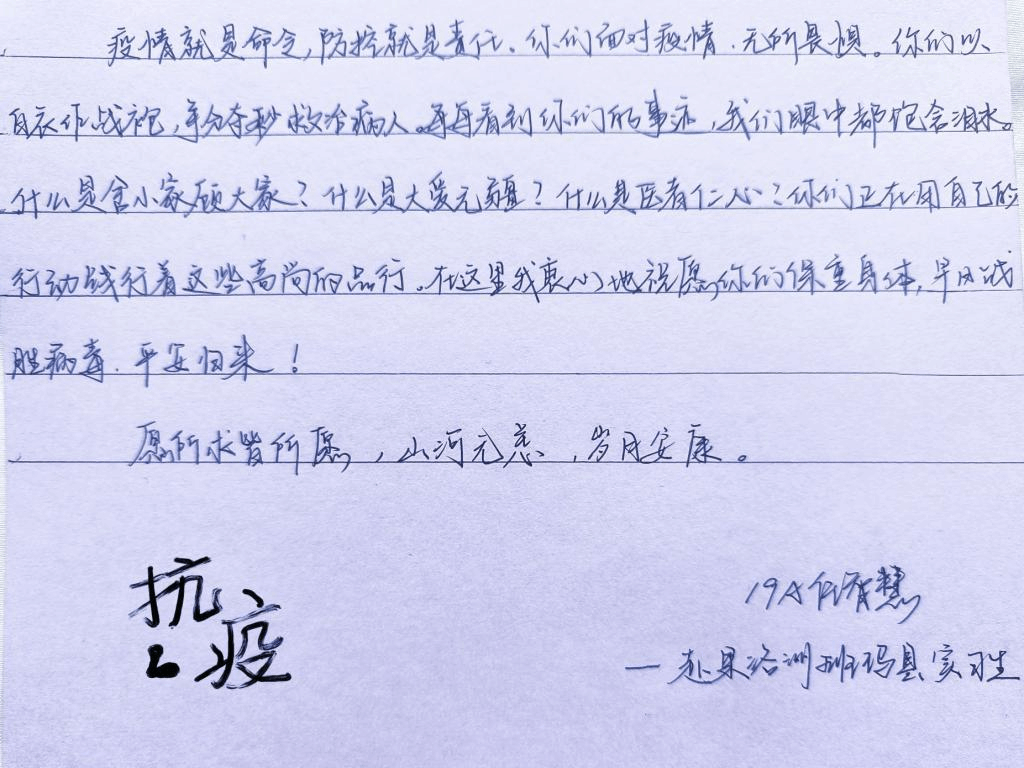 疫情就是命令,防控就是责任。你们面对疫情.无所畏惧。你们以
白衣作战袍,争分夺秒救治病人。每每看到你们的事迹,我们眼中都饱含泪水。
什么是舍小家顾大家?什么是大爱无疆?什么是医者仁心?你们正在用自己的
行动践行着这些高尚的品行。在这里我衷心地祝愿你们保重身体,早日战
胜病毒.平安归来!
愿所求皆所愿,山河无恙,岁月安康。
抗
疫
19A
—赴果洛洲班玛县实习生